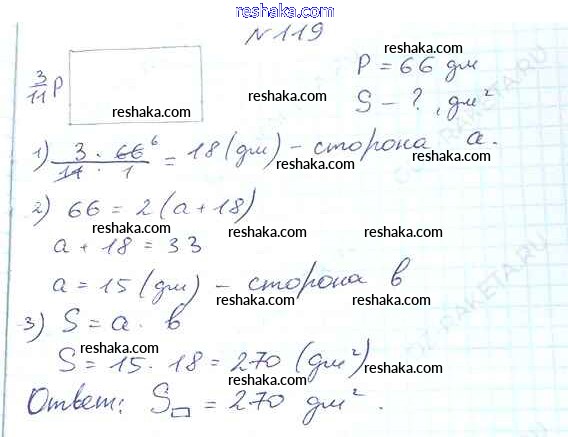 reshaka.com
№119
reshaka.com
P = 66 дм
3/11 P
reshaka.com
reshaka.com
S - ?, дм²
reshaka.com
reshaka.com
1) 3 · 66 6 / 11 · 1 = 18 (дм) - сторона a.
reshaka.com
reshaka.com
2) 66 = 2 (a + 18)
reshaka.com
reshaka.com
a + 18 = 33
a = 15 (дм) - сторона в
reshaka.com
reshaka.com
3) S = a · в
reshaka.com
S = 15 · 18 = 270 (дм²)
reshaka.com
reshaka.com
Ответ: S▭ = 270 дм².
reshaka.com